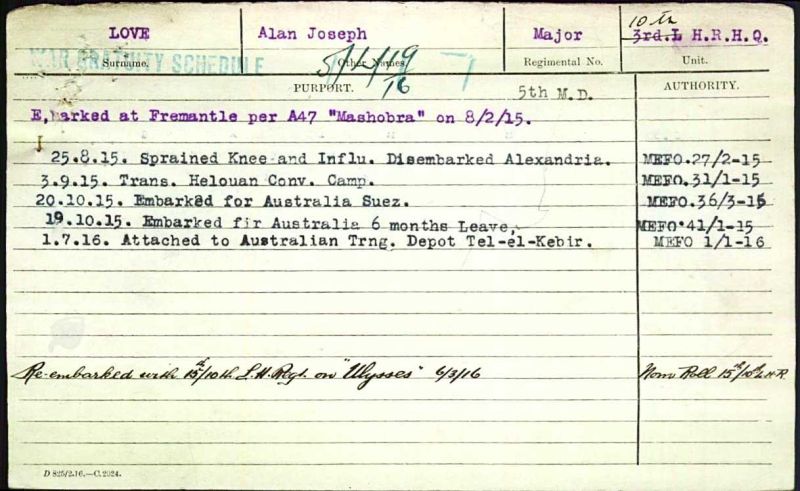 LOVE Alan Joseph Major 10th 3rd.L H.R.H.Q.
WAR GRATUITY SCHEDULE
Surname. Other Names. Regimental No. Unit.
5/4/19
16
PURPORT. 5th M.D. AUTHORITY.
E,barked at Fremantle per A47 "Mashobra" on 8/2/15.
25.8.15. Sprained Knee and Influ. Disembarked Alexandria. MEFO.27/2-15
3.9.15. Trans. Helouan Conv. Camp. MEFO.31/1-15
20.10.15. Embarked for Australia Suez. MEFO.36/3-15
19.10.15. Embarked fir Australia 6 months Leave, MEFO.41/1-15
1.7.16. Attached to Australian Trng. Depot Tel-el-Kebir. MEFO 1/1-16
Re-embarked with 15th/10th L.H. Regt. on "Ulysses" 6/3/16 Nom Roll 15th/10th L.H.R.
D 825/2.16.—C.2924.